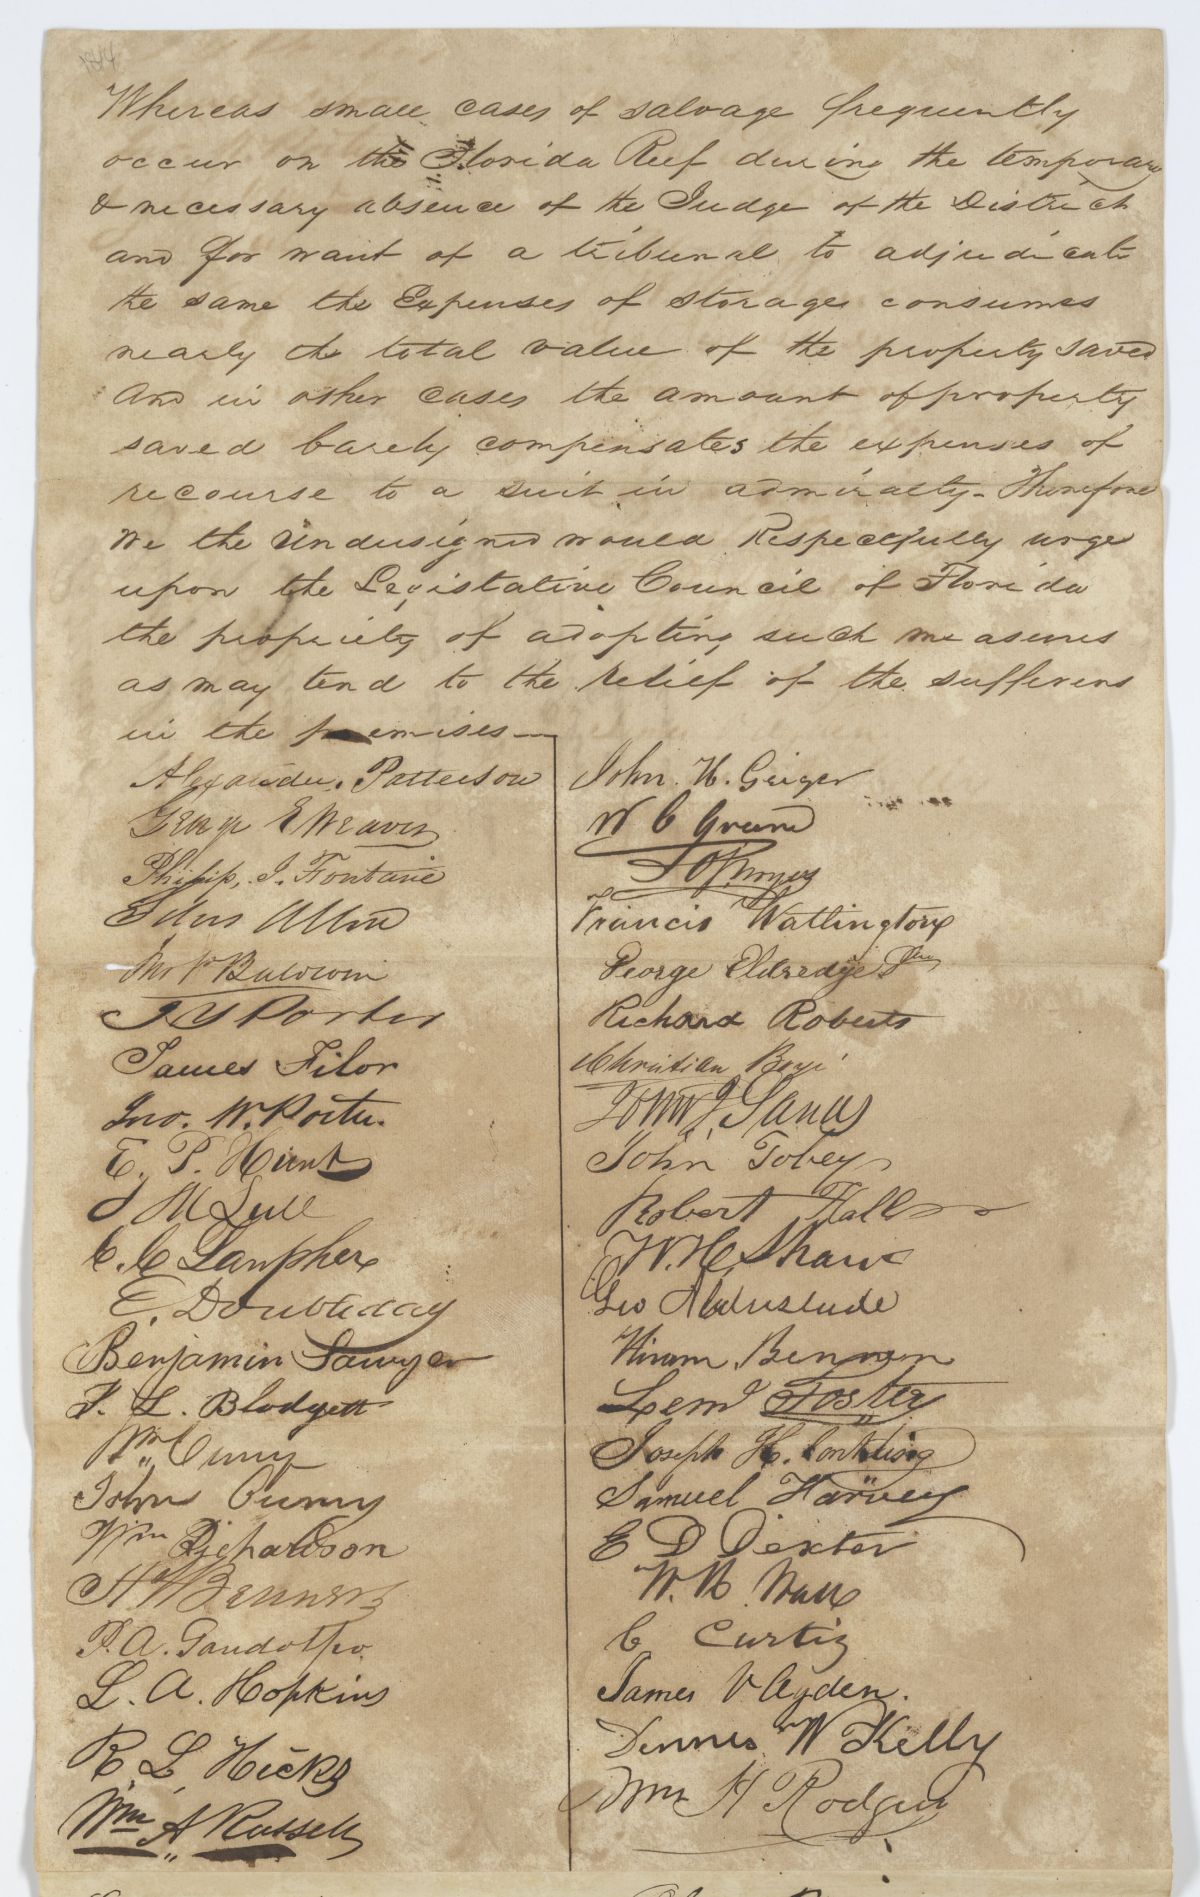 1844
Whereas small cases of salvage frequently
occur on the Florida Reef during the temporary
& necessary absence of the Judge of the District
and for want of a tribunal to adjudicate
the same the Expenses of storage consumes
nearly the total value of the property saved
And in other cases the amount of property
saved barely compensates the expenses of
recourse to a suit in admiralty - Therefore
We the Undersigned would Respectfully urge
upon the Legislative Council of Florida
the propriety of adopting such measures
as may tend to the relief of the sufferers
in the premises —
Alexander Patterson
George E Weaver
Philip. J. Fontane
Allen
Baldwin
J Y Porter
James Filor
Jno. W. Porter
E. P. Hunt
J M Lull
C. C Lanphier
E. Doubleday
Benjamin Sawyer
F. L. Blodgett
Wm Curry
John Curry
Wm Richardson
Benners
F. A. Gandolfo
L. A. Hopkins
R. L. Hicks
Wm A Russell
John. H. Geiger
W C Greene
Francis Watlington
George Eldredge
Richard Roberts
Christian Boye
John J. Sands
John Tobey
Robert Hall
W. H Shaw
Geo Alderslade
Hiram Benner
Leml Foster
Joseph H.
Samuel Harvey
E D Dexter
W. H. Wall
C Curtis
James V Ogden.
Dennis W Kelly
Wm H Rodgers